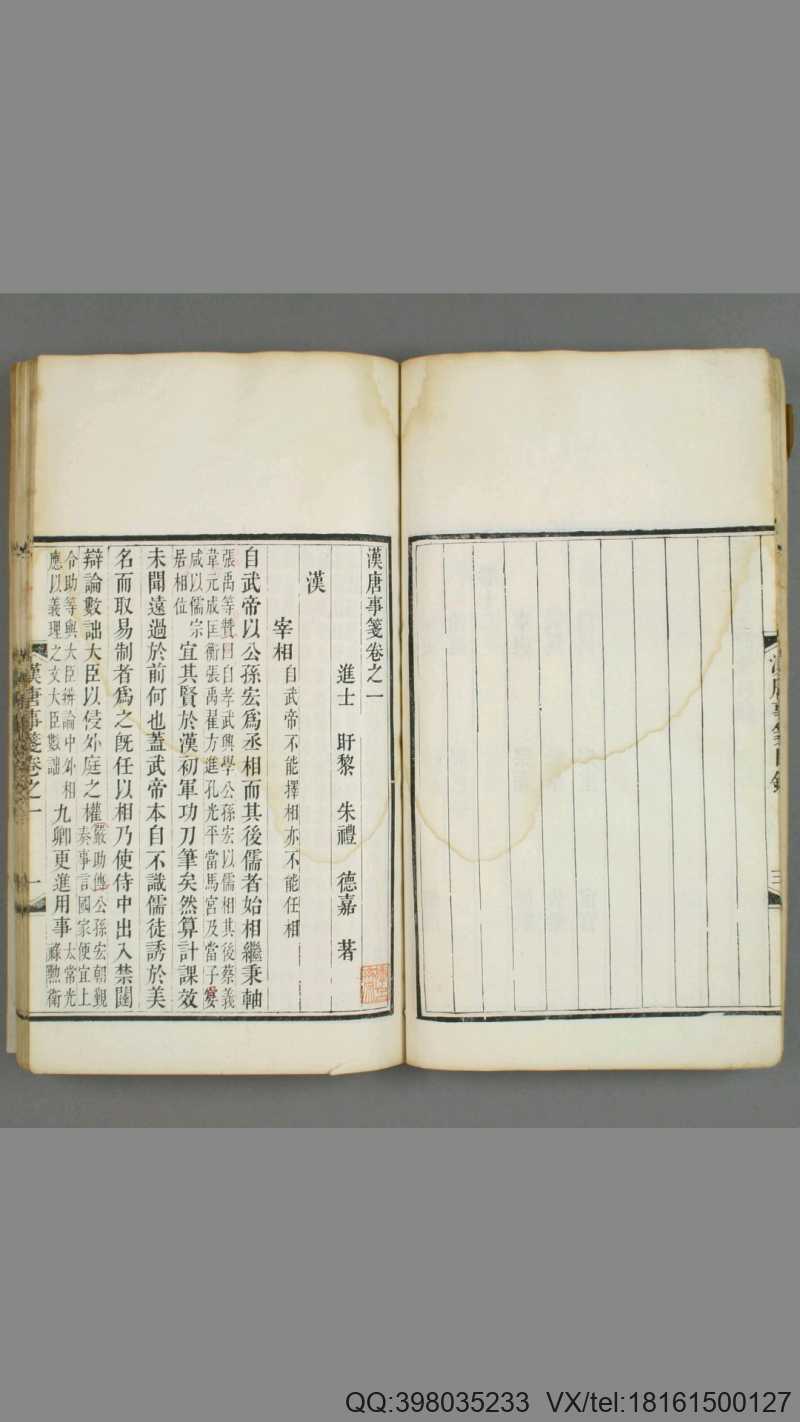 漢唐事箋目錄 三
漢唐事箋卷之一
進士 盱黎 朱禮 德嘉 著
漢
宰相 自武帝不能擇相亦不能任相
自武帝以公孫宏爲丞相而其後儒者始相繼秉軸
張禹等贊曰自孝武興學公孫宏以儒相其後蔡義
韋元成匡衡張禹翟方進孔光平當馬宮及當子晏
咸以儒宗
居相位
宜其賢於漢初軍功刀筆矣然算計課效
未聞遠過於前何也蓋武帝本自不識儒徒誘於美
名而取易制者爲之旣任以相乃使侍中出入禁闥
辯論數詘大臣以侵外庭之權
嚴助傳公孫宏朝覲
奏事言國家便宜上
令助等與大臣辨論中外相
應以義理之文大臣數詘
九卿更進用事
太常光
祿勲衛
漢唐事箋卷之一 一
QQ:398035233 VX/tel:18161500127